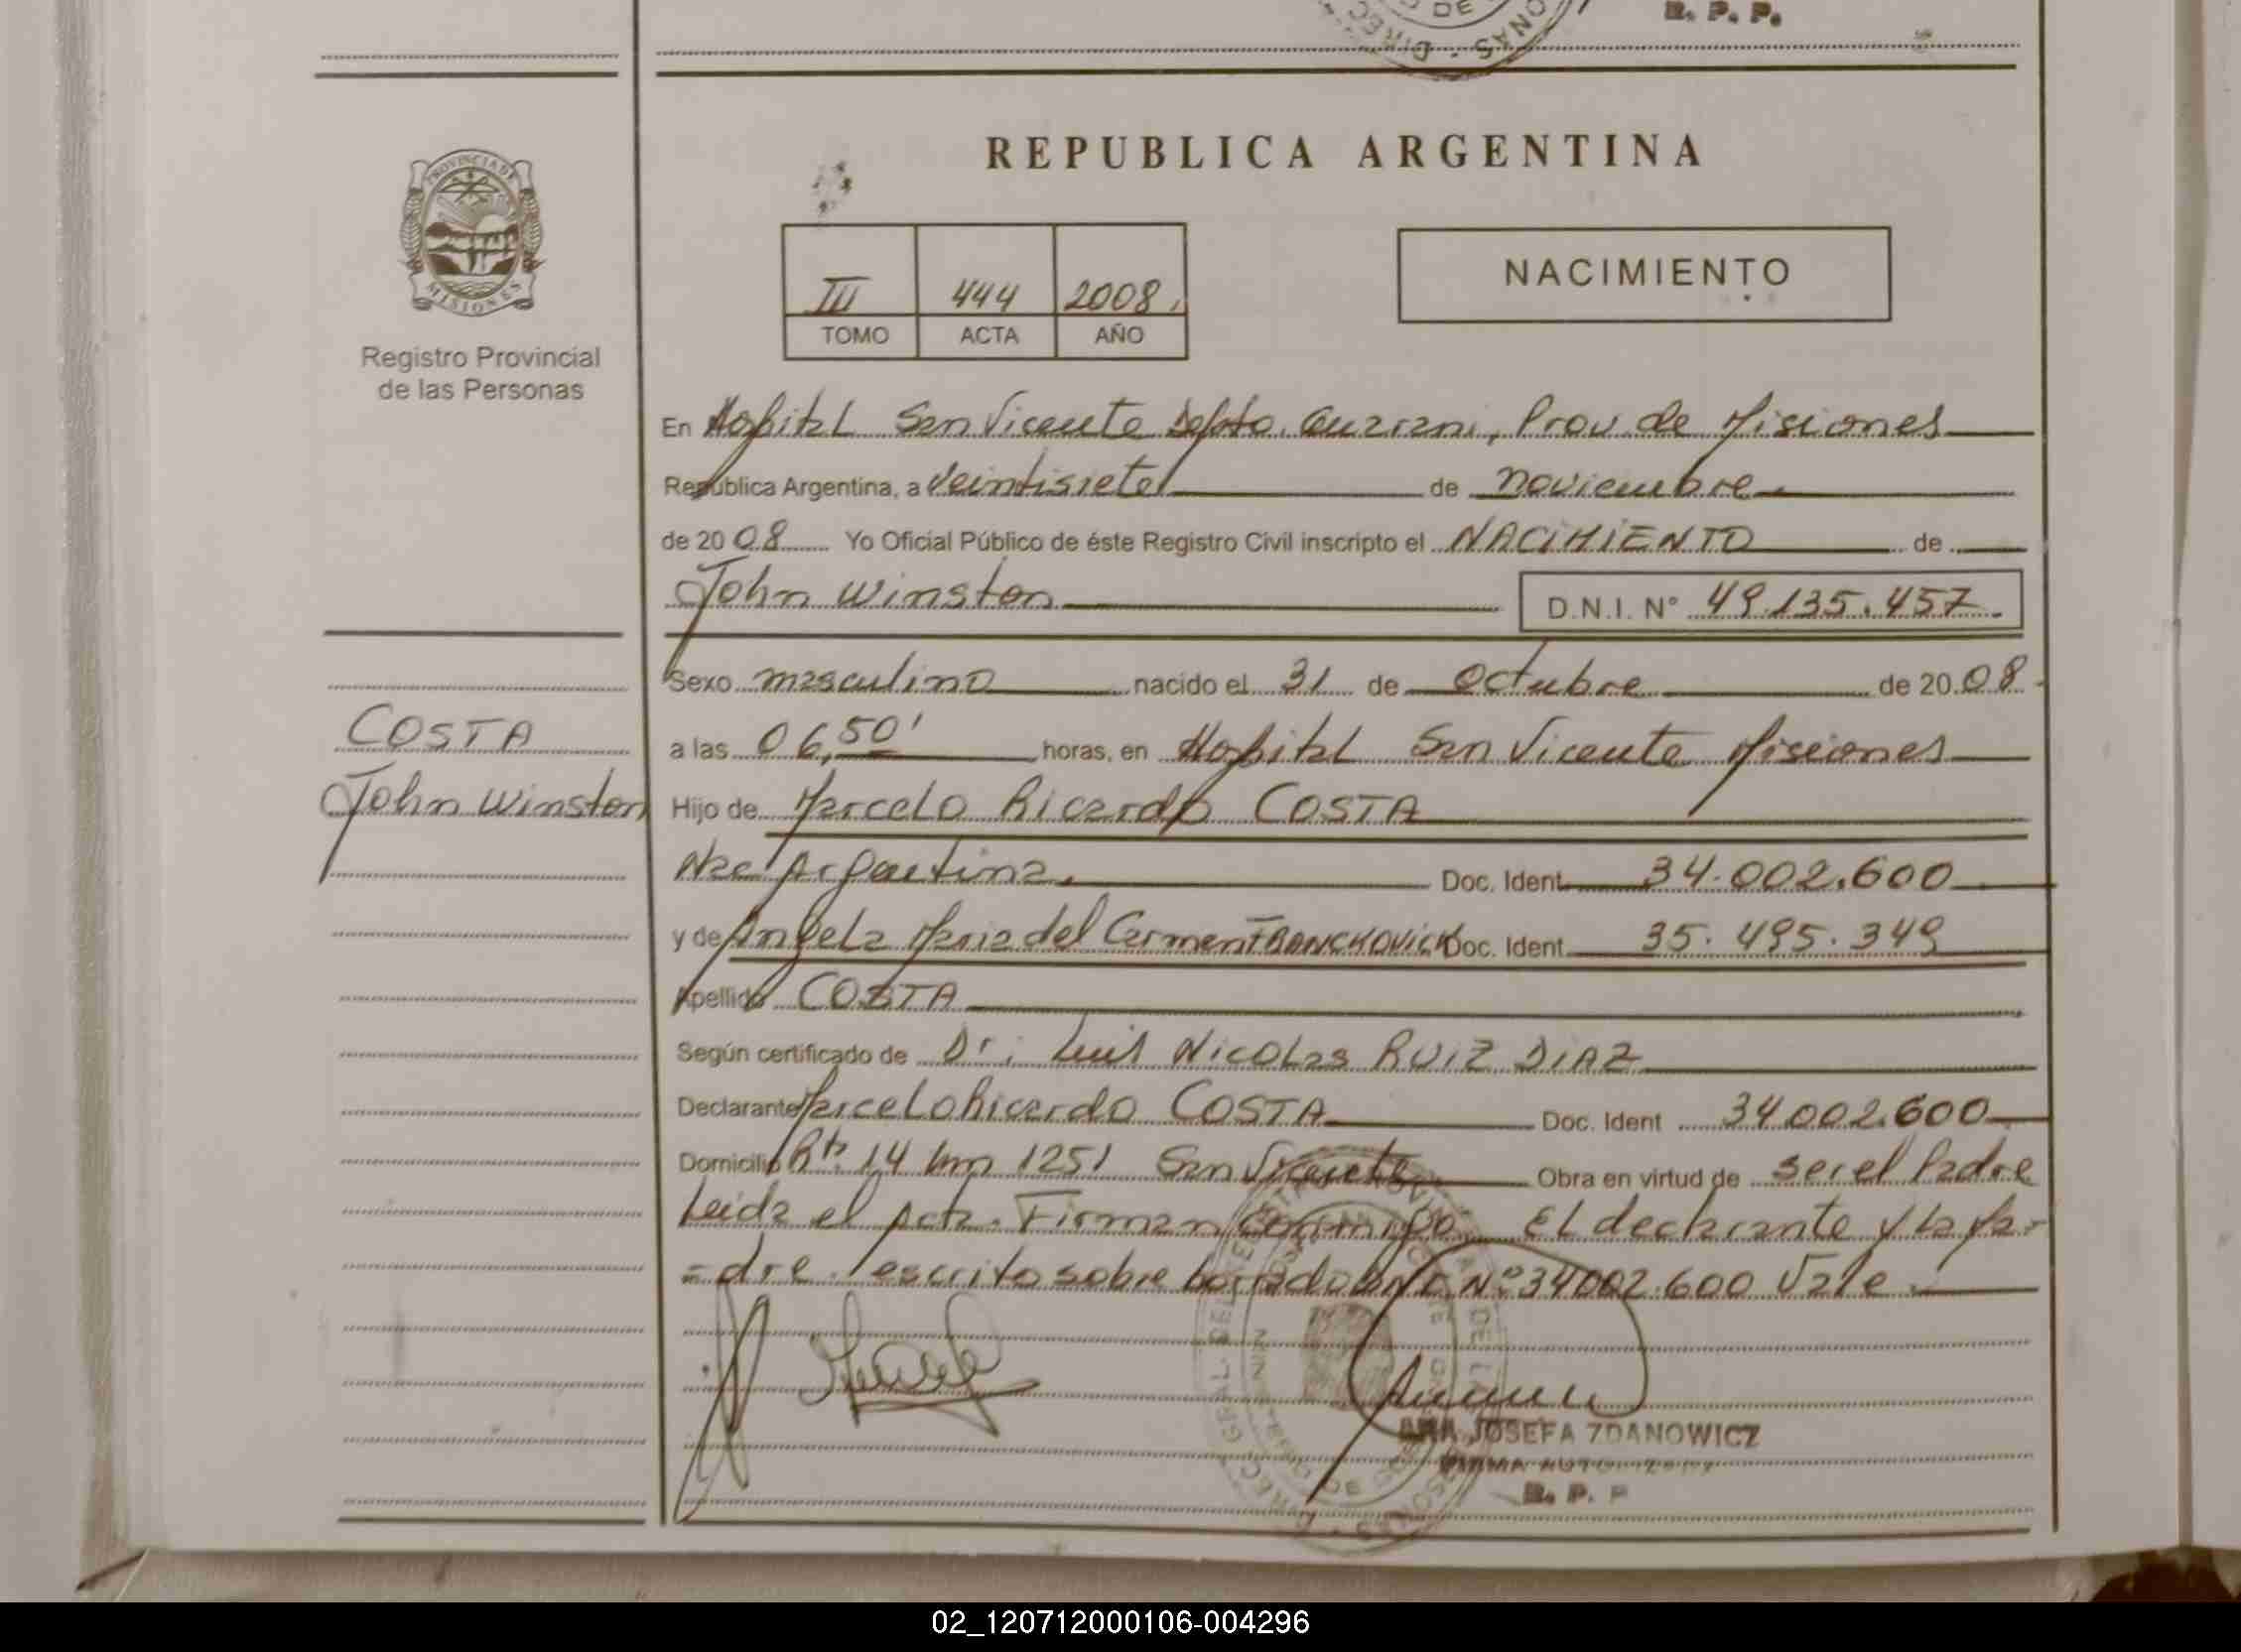 R. P. P.
REPUBLICA ARGENTINA
PROVINCIA DE
MISIONES
Registro Provincial
de las Personas
III 444 2008.
TOMO ACTA AÑO
NACIMIENTO
En Hospital San Vicente Depto. Guarani, Prov de Misiones
República Argentina, a Veintisiete de noviembre
de 2008 Yo Oficial Público de éste Registro Civil inscripto el NACIMIENTO de
John Winston D.N.I. N° 49.135.457
Sexo masculino nacido el 31 de Octubre de 2008
a las 06,50' horas, en Hospital San Vicente Misiones
COSTA
John Winston
Hijo de Marcelo Ricardo COSTA
Nac Argentina. Doc. Ident. 34.002.600
y de Angela Maria del Carmen FRANCKOVICK Doc. Ident. 35.495.349
Apellido COSTA
Según certificado de Dr. Luis Nicolas RUIZ DIAZ
Declarante Marcelo Ricardo COSTA Doc. Ident 34.002.600
Domicilio Rta 14 km 1251 San Vicente Obra en virtud de ser el Padre
Leida el Acta. Firman conmigo El declarante y la Ma-
-dre. escrito sobre borrado DNI Nº 34002.600 Vale
ANA JOSEFA ZDANOWICZ
FIRMA AUTORIZADA
R. P. P
02_120712000106-004296